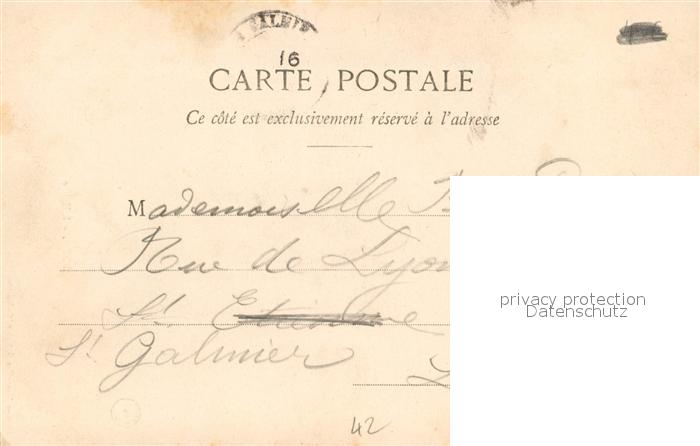 16
CARTE POSTALE
Ce côté est exclusivement réservé à l'adresse
Mademoiselle
Rue de Lyon
St. Etienne
St Galmier
42
privacy protection
Datenschutz